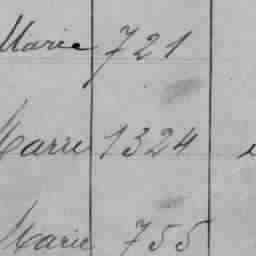 Marie 721
Marie 1324
Marie 755